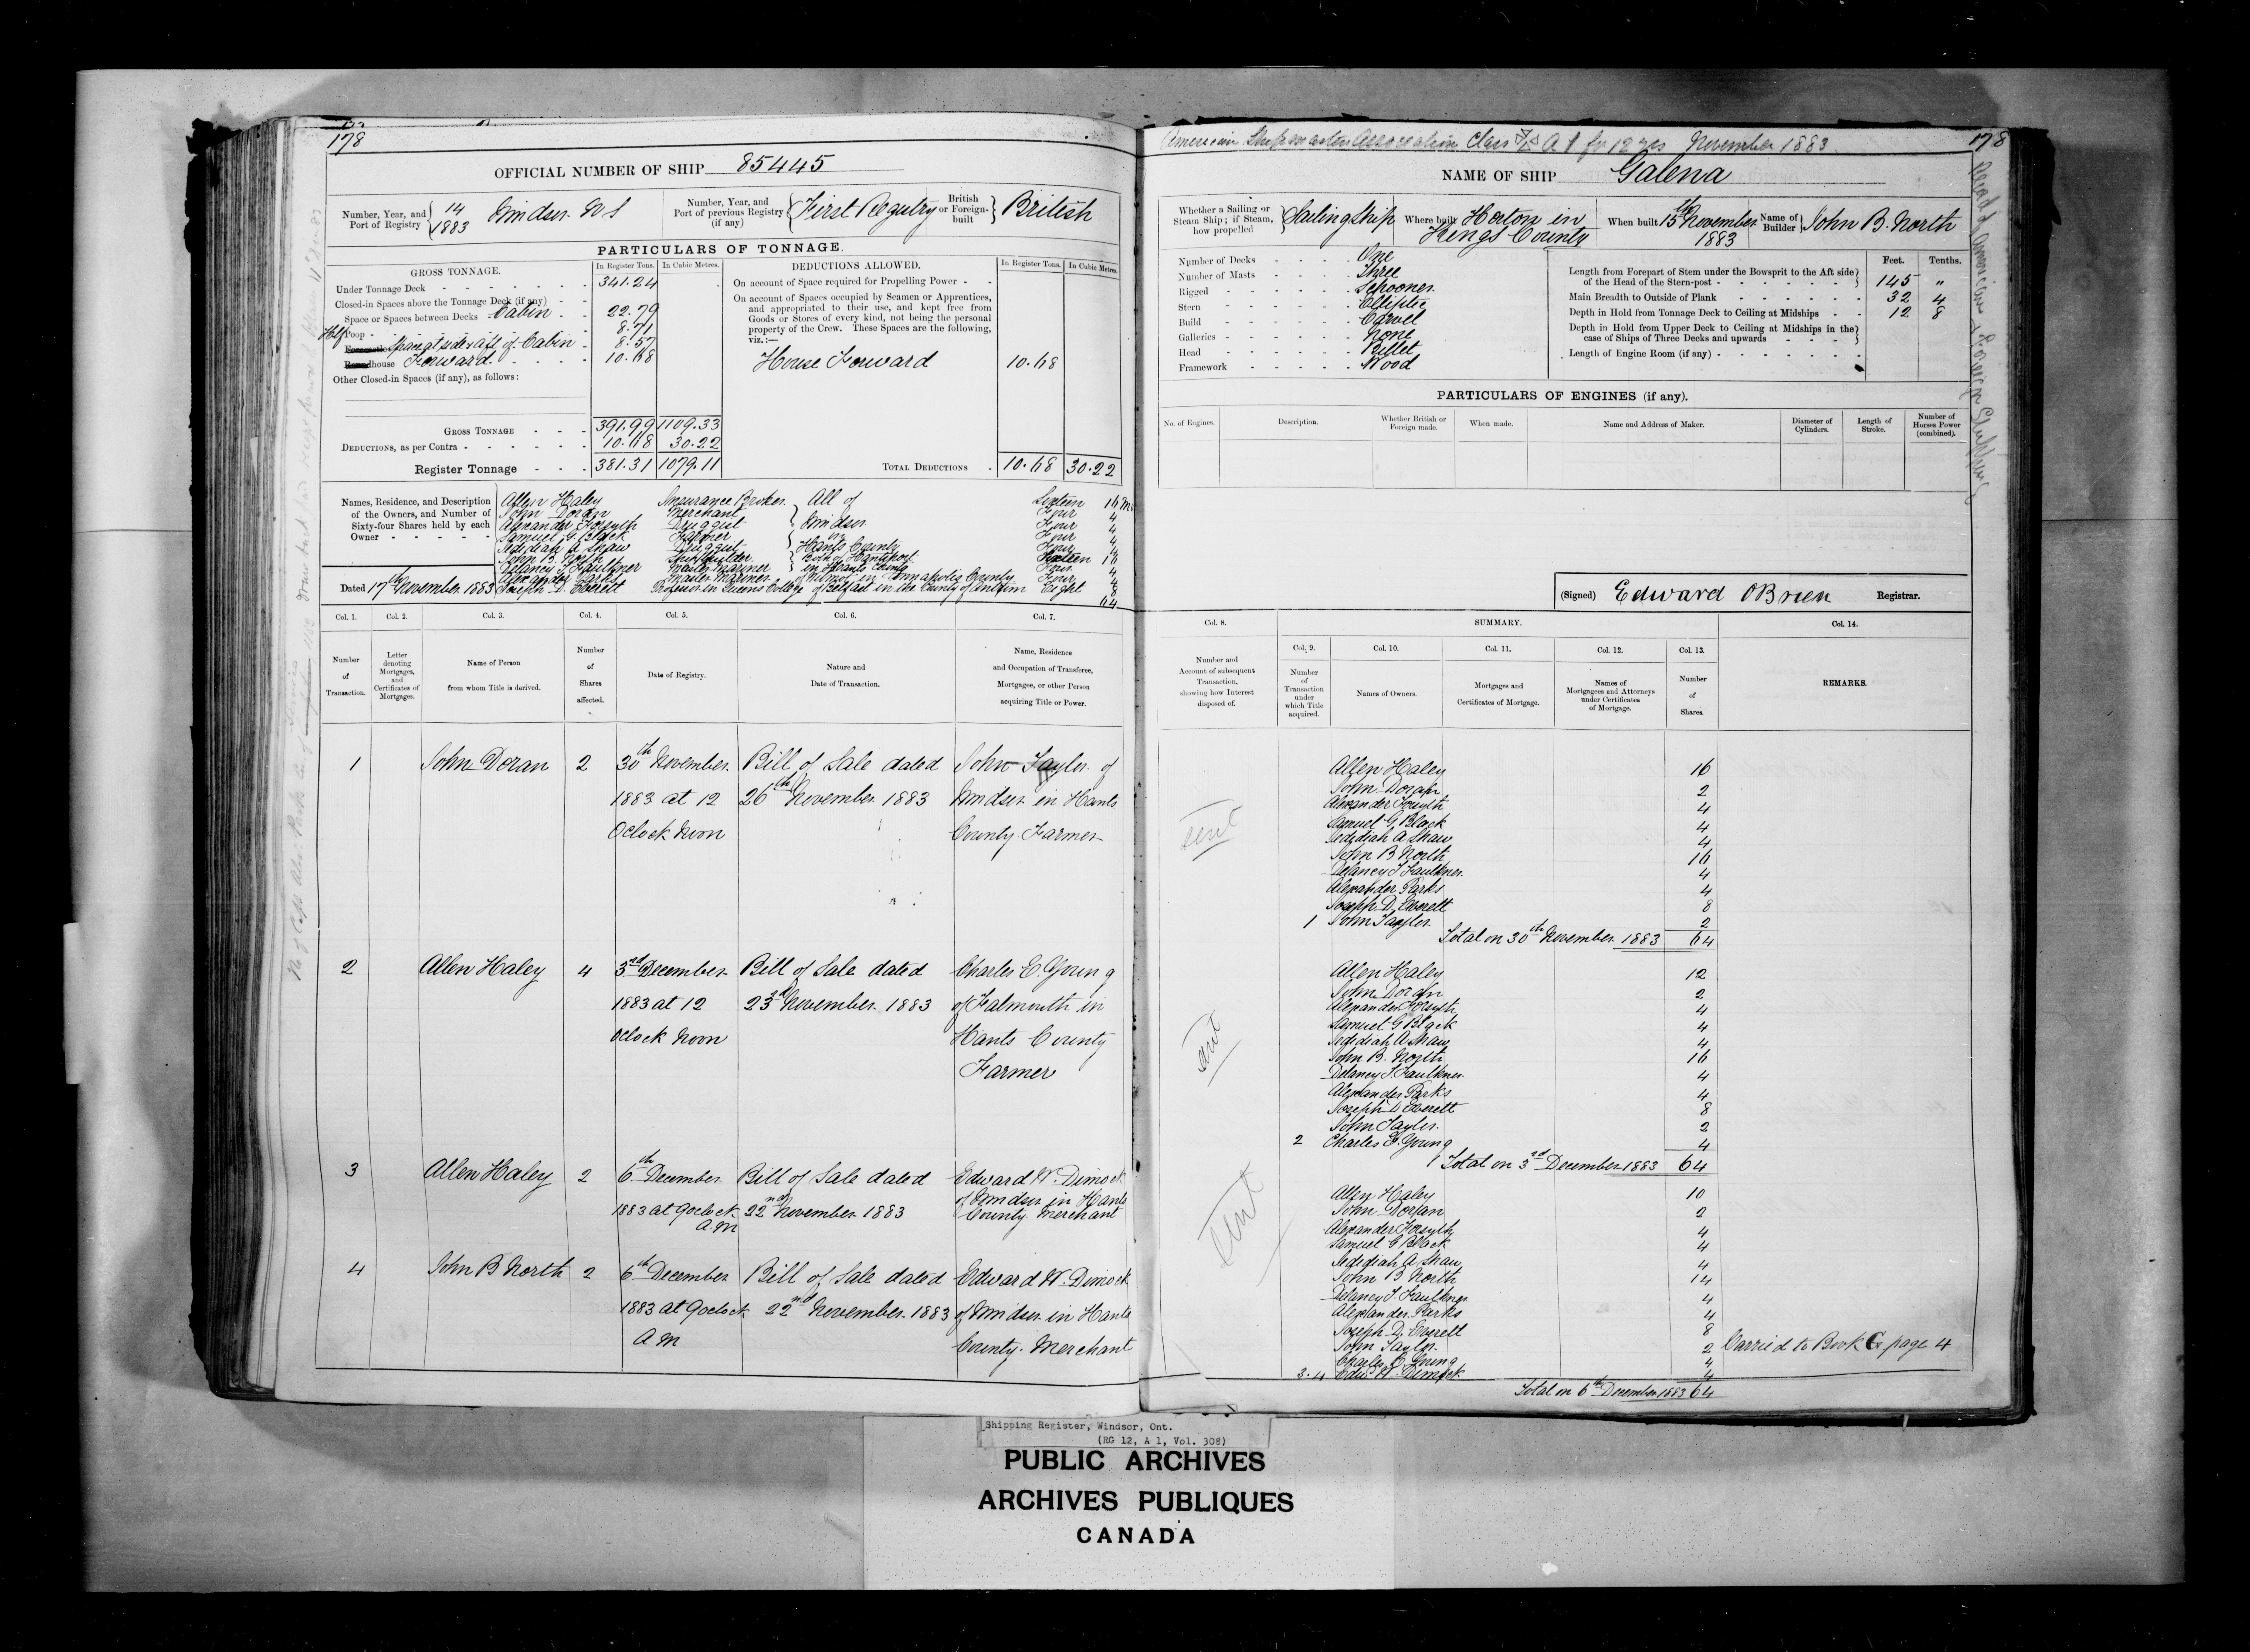 178
OFFICIAL NUMBER OF SHIP 85445
Number, Year, and Port of Registry 14 1883 Windsor. N S
Number, Year, and Port of previous Registry (if any) First Registry
British or Foreign-built British
PARTICULARS OF TONNAGE.
GROSS TONNAGE. In Register Tons. In Cubic Metres.
Under Tonnage Deck 341.24
Closed-in Spaces above the Tonnage Deck (if any)
Space or Spaces between Decks Cabin 22.79
Half Poop 8.71
Space at sides & aft of Cabin 8.57
house Forward 10.68
Other Closed-in Spaces (if any), as follows:
GROSS TONNAGE 391.99 1109.33
DEDUCTIONS, as per Contra 10.68 30.22
Register Tonnage 381.31 1079.11
DEDUCTIONS ALLOWED. In Register Tons. In Cubic Metres.
On account of Space required for Propelling Power
On account of Spaces occupied by Seamen or Apprentices,
and appropriated to their use, and kept free from
Goods or Stores of every kind, not being the personal
property of the Crew. These Spaces are the following,
viz.:—
House Forward 10.68
TOTAL DEDUCTIONS 10.68 30.22
Names, Residence, and Description
of the Owners, and Number of
Sixty-four Shares held by each
Owner
Allen Haley Insurance Broker All of Sixteen 16
John Doran Merchant Four 4
Alexander Forsyth Druggist Windsor Four 4
Samuel G. Black Farmer in Four 4
Jedidiah A Shaw Druggist Hants County Four 4
John B. North Shipbuilder Both of Hantsport Sixteen 16
Delancy T Faulkner Master Mariner in Hants County Four 4
Alexander Parks Master Mariner in Annapolis County Four 4
Joseph D. Everett Professor in Queens College of Belfast in the County of Antrim Eight 8
64
Dated 17th November 1883
Col. 1. Col. 2. Col. 3. Col. 4. Col. 5. Col. 6. Col. 7.
Number of Transaction.
Letter denoting Mortgages, and Certificates of Mortgages.
Name of Person from whom Title is derived.
Number of Shares affected.
Date of Registry.
Nature and Date of Transaction.
Name, Residence and Occupation of Transferee, Mortgagee, or other Person acquiring Title or Power.
1 John Doran 2 30th November Bill of Sale dated John Taylor of
1883 at 12 26th November 1883 Windsor in Hants
Oclock Noon County Farmer
2 Allen Haley 4 3rd December Bill of Sale dated Charles E. Young
1883 at 12 23rd November 1883 of Falmouth in
Oclock Noon Hants County
Farmer
3 Allen Haley 2 6th December Bill of Sale dated Edward W. Dimock
1883 at 9oclock 22nd November 1883 of Windsor in Hants
A.M County. Merchant
4 John B North 2 6th December Bill of Sale dated Edward W. Dimock
1883 at 9oclock 22nd November 1883 of Windsor in Hants
A M County. Merchant
American Shipmasters Association Class A 1 for 12 yrs November 1883
178
NAME OF SHIP Galena
Whether a Sailing or Steam Ship; if Steam, how propelled Sailing Ship
Where built Horton in Kings County
When built 15th November 1883
Name of Builder John B. North
Number of Decks One
Number of Masts Three
Rigged Schooner
Stern Elliptic
Build Carvel
Galleries None
Head Billet
Framework Wood
Feet. Tenths.
Length from Forepart of Stem under the Bowsprit to the Aft side
of the Head of the Stern-post 145 "
Main Breadth to Outside of Plank 32 4
Depth in Hold from Tonnage Deck to Ceiling at Midships 12 8
Depth in Hold from Upper Deck to Ceiling at Midships in the
case of Ships of Three Decks and upwards
Length of Engine Room (if any)
PARTICULARS OF ENGINES (if any).
No. of Engines. Description. Whether British or Foreign made. When made. Name and Address of Maker. Diameter of Cylinders. Length of Stroke. Number of Horses Power (combined).
(Signed) Edward OBrien Registrar.
Col. 8. SUMMARY. Col. 14.
Number and Account of subsequent Transaction, showing how Interest disposed of.
Col. 9. Col. 10. Col. 11. Col. 12. Col. 13.
Number of Transaction under which Title acquired.
Names of Owners.
Mortgages and Certificates of Mortgage.
Names of Mortgagees and Attorneys under Certificates of Mortgage.
Number of Shares.
REMARKS.
sent
Allen Haley 16
John Doran 2
Alexander Forsyth 4
Samuel G Black 4
Jedidiah A Shaw 4
John B North 16
Delancy T Faulkner 4
Alexander Parks 4
Joseph D. Everett 8
1 John Taylor 2
Total on 30th November 1883 64
sent
Allen Haley 12
John Doran 2
Alexander Forsyth 4
Samuel G Black 4
Jedidiah A Shaw 4
John B. North 16
Delancy T. Faulkner 4
Alexander Parks 4
Joseph D Everett 8
John Taylor 2
2 Charles E. Young 4
Total on 3rd December 1883 64
sent
Allen Haley 10
John Doran 2
Alexander Forsyth 4
Samuel G Black 4
Jedidiah A Shaw 4
John B North 14
Delancy T. Faulkner 4
Alexander Parks 4
Joseph D. Everett 8
John Taylor 2 Carried to Book G page 4
Charles E Young 4
3.4 Edw W Dimock 4
Total on 6th December 1883 64
Shipping Register, Windsor, Ont.
(RG 12, A 1, Vol. 308)
PUBLIC ARCHIVES
ARCHIVES PUBLIQUES
CANADA